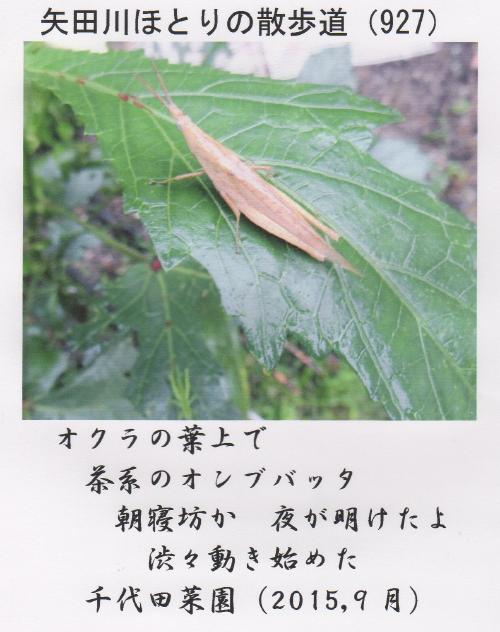 矢田川ほとりの散歩道（927）
オクラの葉上で
茶系のオンブバッタ
朝寝坊か　夜が明けたよ
渋々動き始めた
千代田菜園（2015,9月）